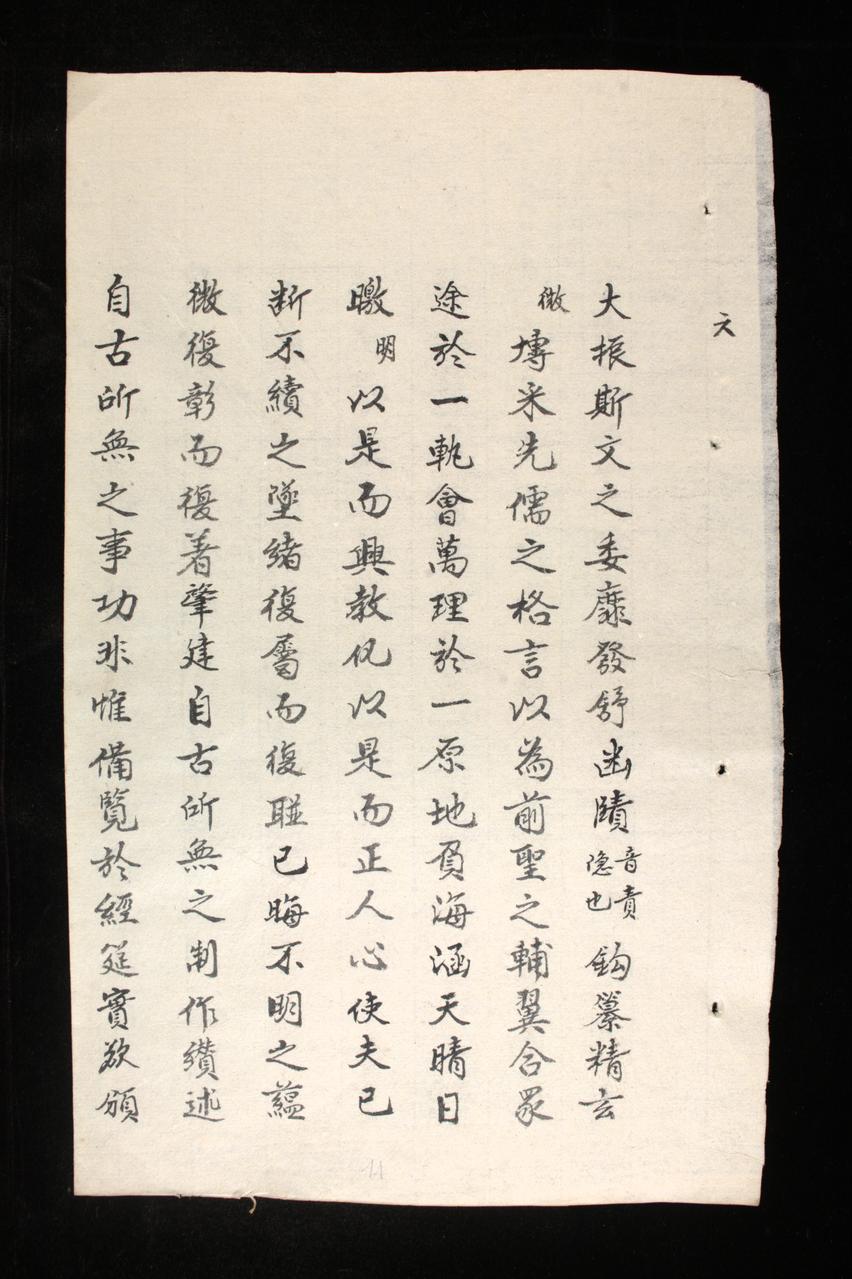 大振斯文之委靡發舒幽賾音責隐也鈎纂精玄
微博采先儒之格言以為前聖之輔翼合眾
途於一軌會萬理於一原地負海涵天晴日
曒明以是而興教化以是而正人心使夫已
断不續之墜緒復屬而復聯已晦不明之蘊
微復彰而復著肇建自古所無之制作纘述
自古所無之事功非惟備覽於經筵實欲頒
11